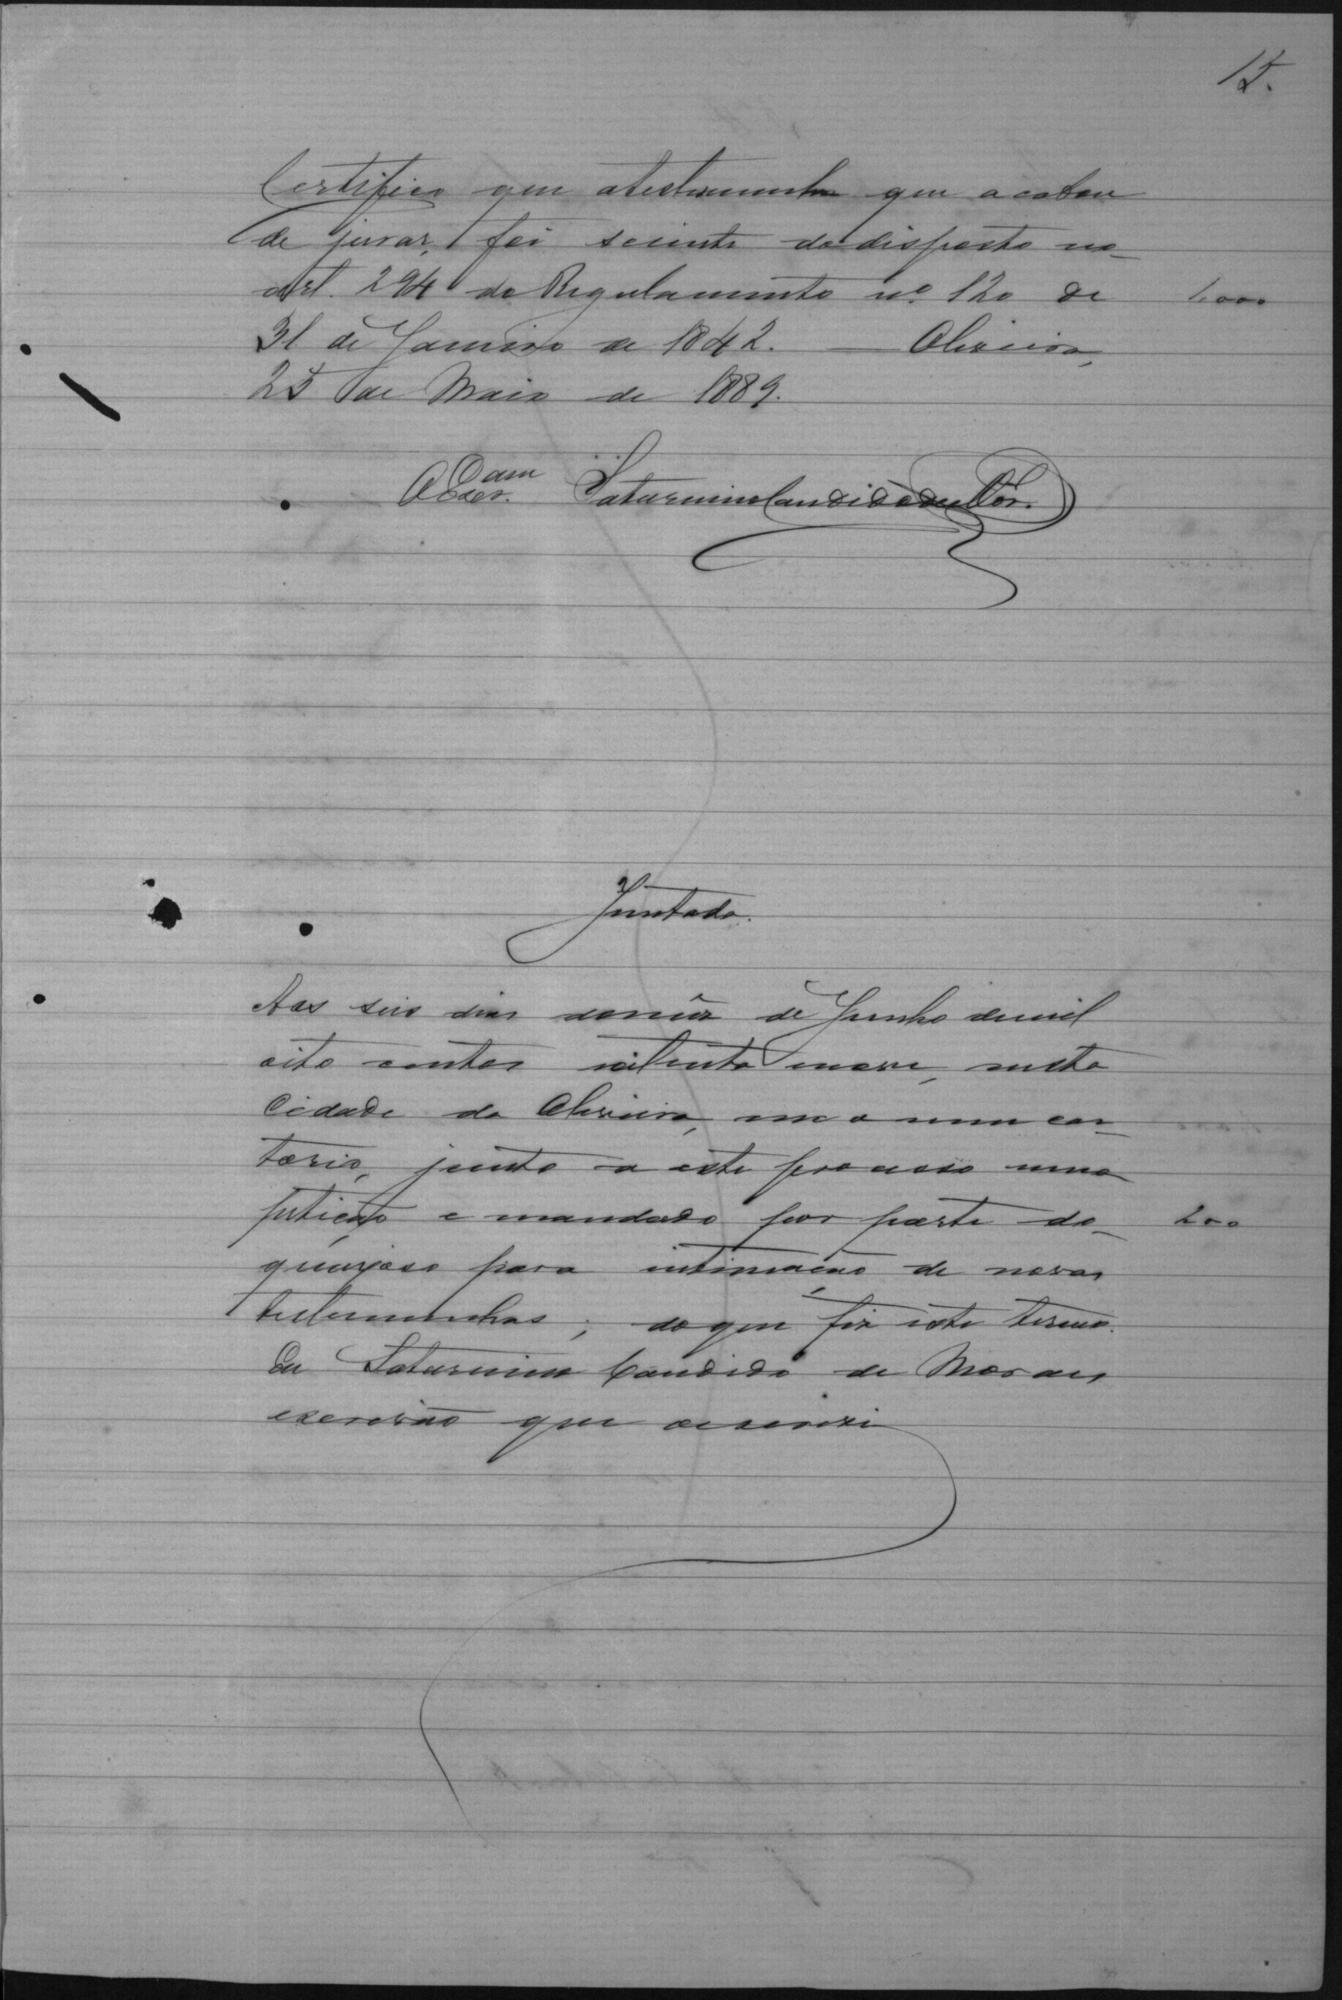 15.
Certifico que atestemunha que acabou
de jurar, foi sciente do disposto no
art. 294 do Regulamento nº 120 de 1000
31 de Janeiro de 1842. — Oliveira,
25 de Maio de 1889.
Saturnino Candido de Mor.
Juntada.
Aos seis dias domez de Junho demil
oito centos oitenta enove, nesta
Cidade da Oliveira, em o meu car-
torio, junto a este processo uma
petição e mandado por parte do 200
queixoso para intimação de novas
testemunhas; do que fiz este termo.
Eu Saturnino Candido de Moraes
escrivão que escrevi